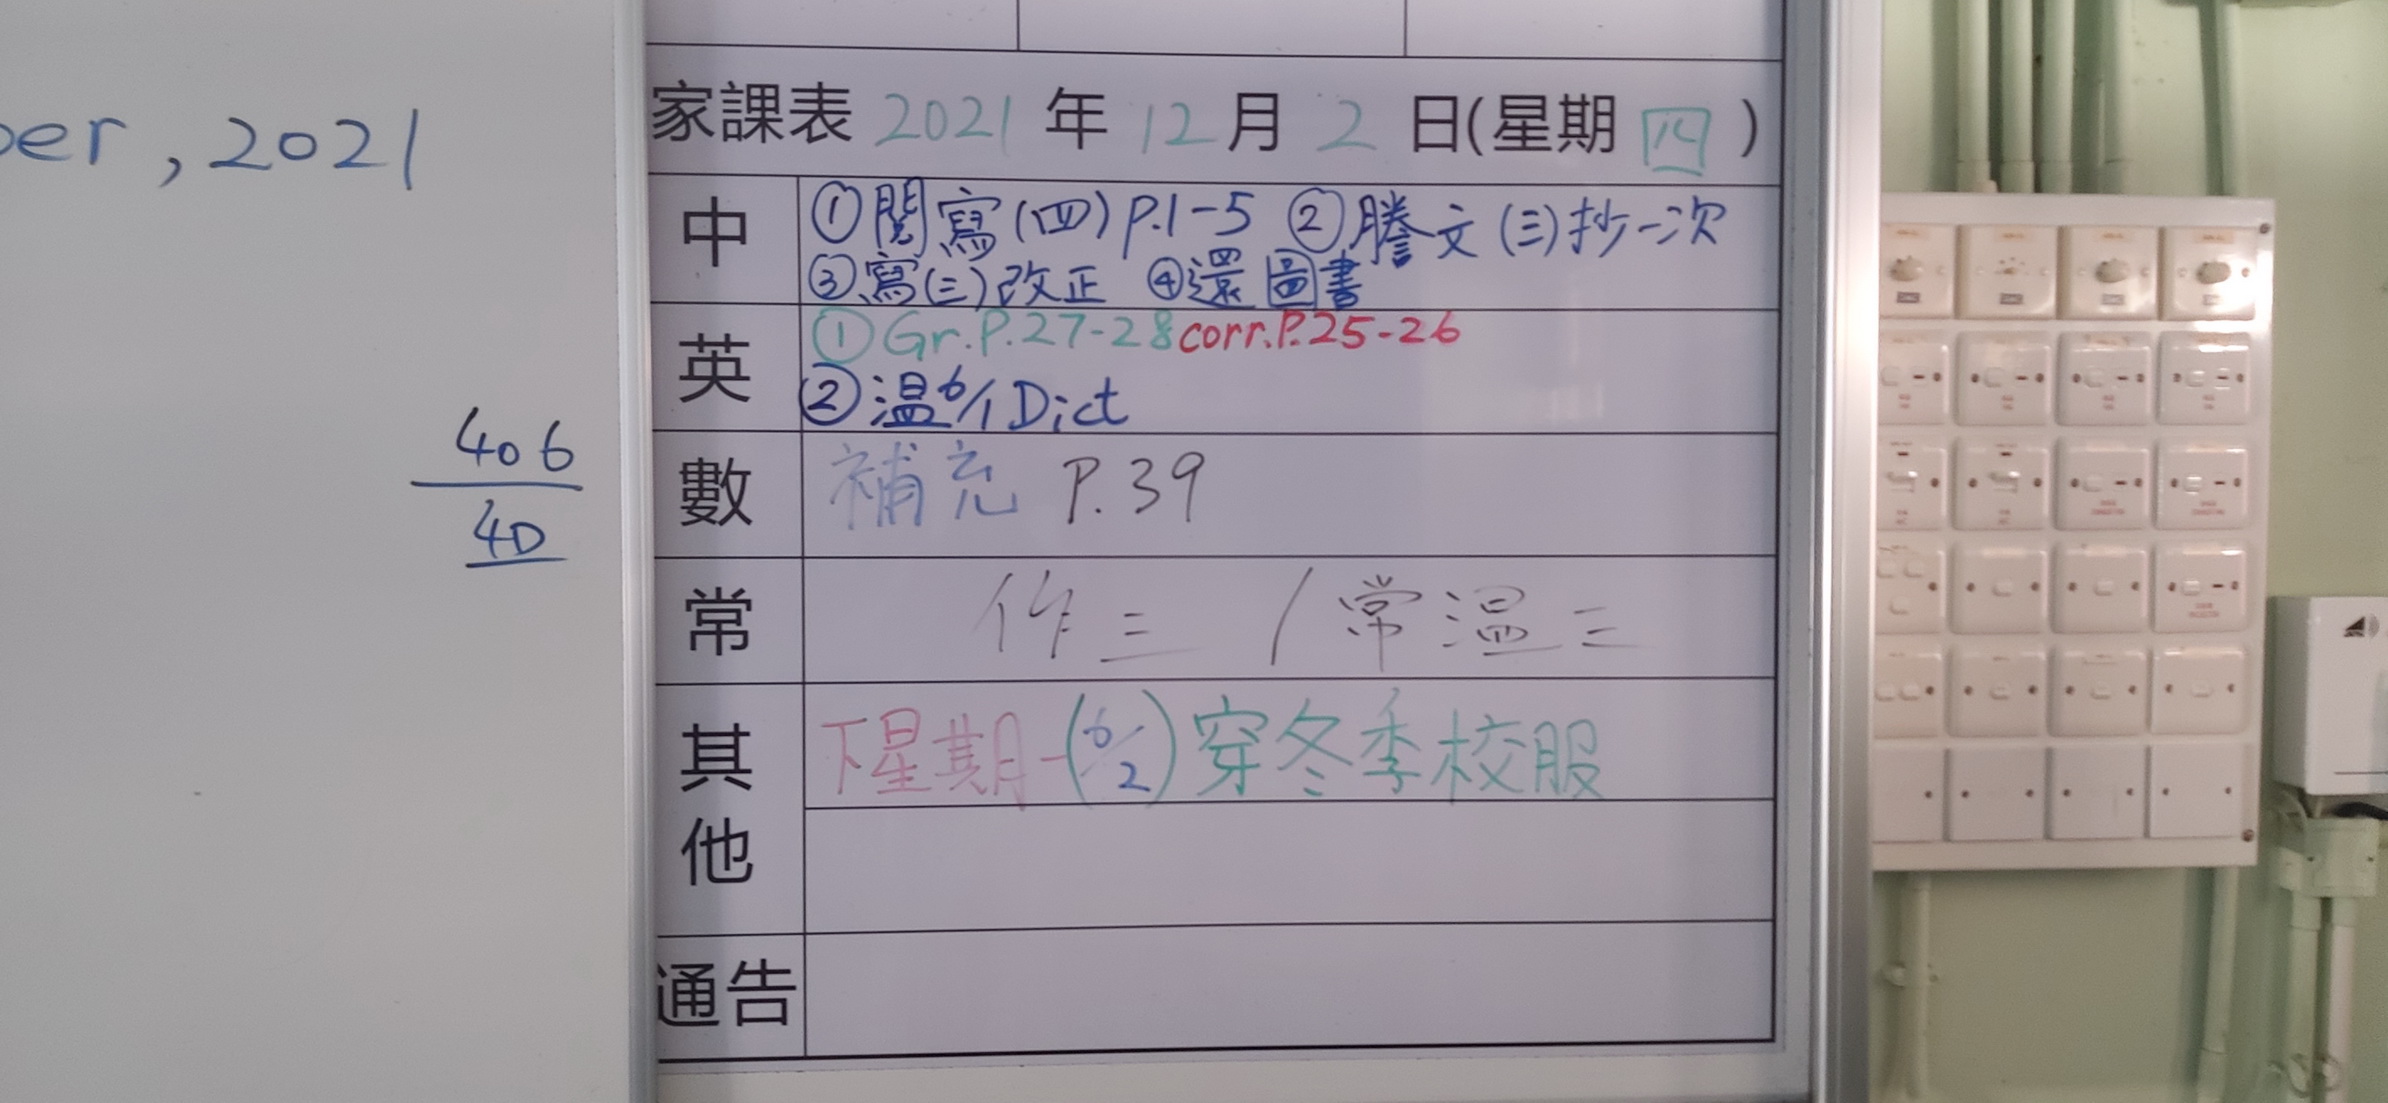 ber, 2021
406
40
家課表 2021 年 12 月 2 日(星期 四 )
中 ①閱寫(四) P.1-5 ②謄文(三)抄一次
③寫(三)改正 ④還圖書
英 ①Gr.P.27-28 corr.P.25-26
②溫6/1 Dict
數 補充 P.39
常 作三 / 常溫三
其他 下星期一(6/2) 穿冬季校服
通告